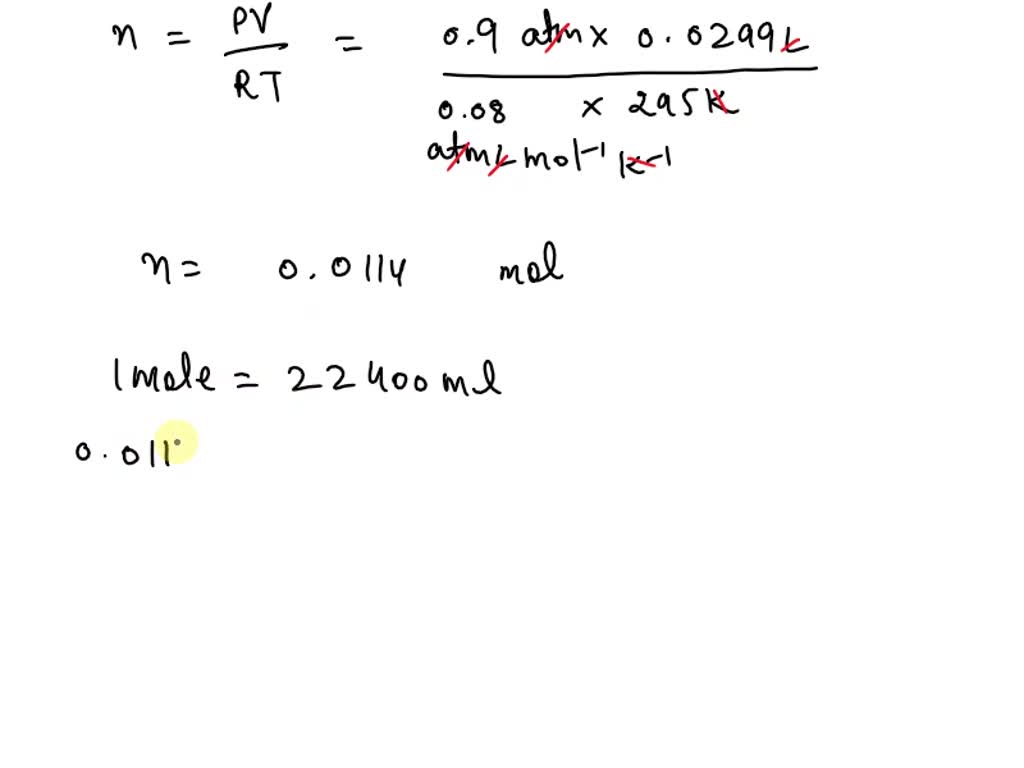 n = PV / RT = 0.9 atm x 0.0299 L
0.08 x 295 K
atm L mol⁻¹ K⁻¹
n = 0.0114 mol
1 mole = 22400 ml
0.011